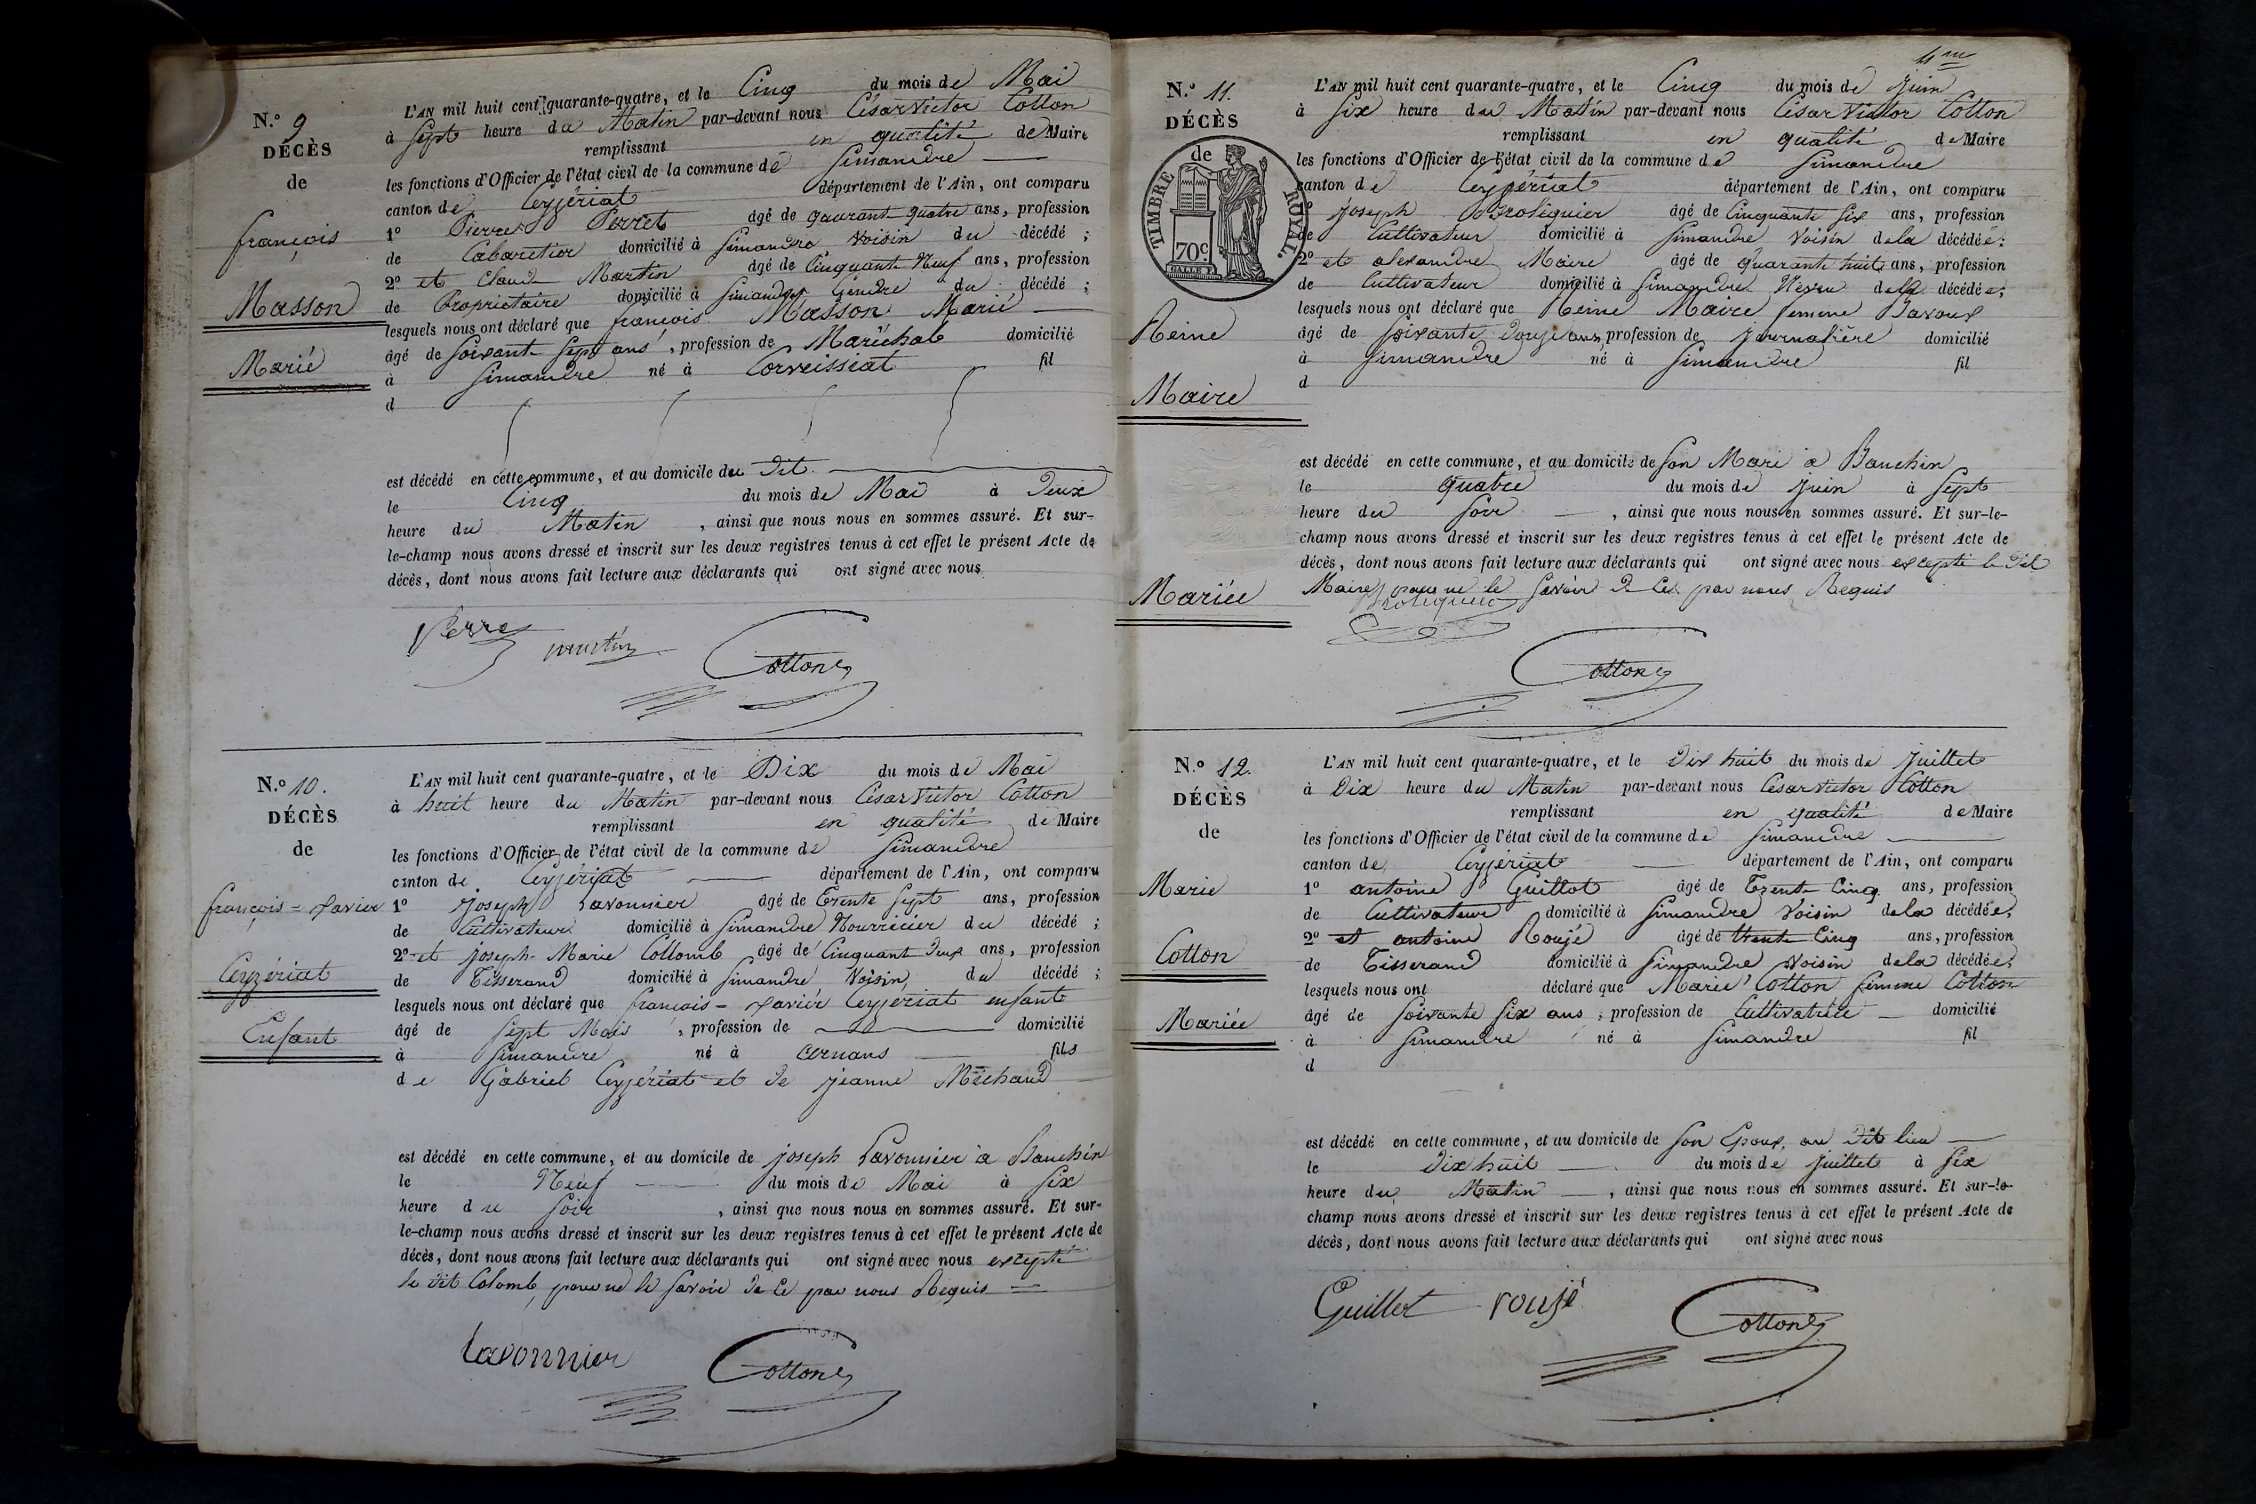 N.º 9
DÉCÈS
de
françois
Masson
Marié
L'AN mil huit cent quarante-quatre, et le Cinq du mois de Mai
à Sept heure du Matin par-devant nous César Victor Cotton
remplissant en qualité de Maire
les fonctions d'Officier de l'état civil de la commune de Simandre
canton de Ceyzériat département de l'Ain, ont comparu
1º Pierre Perret âgé de quarant quatre ans, profession
de Cabaretier domicilié à Simandre voisin du décédé ;
2º et Claude Martin âgé de Cinquante Neuf ans, profession
de Propriétaire domicilié à Simandre Gendre du décédé ;
lesquels nous ont déclaré que françois Masson Marié
âgé de Soixant Sept ans, profession de Maréchal domicilié
à Simandre né à Corveissiat fil
d
est décédé en cette commune, et au domicile du Dit
le Cinq du mois de Mai à Deux
heure du Matin, ainsi que nous nous en sommes assuré. Et sur-
le-champ nous avons dressé et inscrit sur les deux registres tenus à cet effet le présent Acte de
décès, dont nous avons fait lecture aux déclarants qui ont signé avec nous
Perret martin Cotton
N.º 10.
DÉCÈS
de
françois=Xavier
Ceyzériat
Enfant
L'AN mil huit cent quarante-quatre, et le Dix du mois de Mai
à huit heure du Matin par-devant nous César Victor Cotton
remplissant en qualité de Maire
les fonctions d'Officier de l'état civil de la commune de Simandre
canton de Ceyzériat département de l'Ain, ont comparu
1º Joseph Lavonnier âgé de Trente Sept ans, profession
de Cultivateur domicilié à Simandre Nourricier du décédé ;
2º et Joseph-Marie Collomb âgé de Cinquant Deux ans, profession
de Tisserand domicilié à Simandre Voisin du décédé ;
lesquels nous ont déclaré que françois=Xavier Ceyzériat enfant
âgé de Sept Mois, profession de domicilié
à Simandre né à cernans fils
de Gabriel Ceyzériat et de Jeanne Méchaud
est décédé en cette commune, et au domicile de Joseph Lavonnier à Banchin
le Neuf du mois de Mai à Six
heure du Soir, ainsi que nous nous en sommes assuré. Et sur-
le-champ nous avons dressé et inscrit sur les deux registres tenus à cet effet le présent Acte de
décès, dont nous avons fait lecture aux déclarants qui ont signé avec nous excepté
le dit Colomb, pour ne le Savoir de Ce par nous Requis
Lavonnier Cotton
4me
N.º 11.
DÉCÈS
de
TIMBRE ROYAL
70c.
Reine
Maire
Mariée
L'AN mil huit cent quarante-quatre, et le Cinq du mois de Juin
à Six heure du Matin par-devant nous César Victor Cotton
remplissant en qualité de Maire
les fonctions d'Officier de l'état civil de la commune de Simandre
canton de Ceyzériat département de l'Ain, ont comparu
Joseph Broliquier âgé de Cinquante Six ans, profession
de Cultivateur domicilié à Simandre Voisin de la décédée ;
2º et alexandre Maire âgé de quarante huit ans, profession
de Cultivateur domicilié à Simandre Neveu de la décédée ;
lesquels nous ont déclaré que Reine Maire femme Bavoux
âgé de Soixante Douze ans, profession de Journalière domicilié
à Simandre né à Simandre fil
d
est décédé en cette commune, et au domicile de Son Mari à Banchin
le quatre du mois de Juin à Sept
heure du Soir, ainsi que nous nous en sommes assuré. Et sur-le-
champ nous avons dressé et inscrit sur les deux registres tenus à cet effet le présent Acte de
décès, dont nous avons fait lecture aux déclarants qui ont signé avec nous excepté le Dit
Maire pour ne le Savoir de Ce par nous Requis
Broliquier
Cotton
N.º 12.
DÉCÈS
de
Marie
Cotton
Mariée
L'AN mil huit cent quarante-quatre, et le Dix huit du mois de Juillet
à Dix heure du Matin par-devant nous César Victor Cotton
remplissant en qualité de Maire
les fonctions d'Officier de l'état civil de la commune de Simandre
canton de Ceyzériat département de l'Ain, ont comparu
1º antoine Guillot âgé de Trente Cinq ans, profession
de Cultivateur domicilié à Simandre Voisin de la décédée ;
2º et antoine Roujé âgé de trente Cinq ans, profession
de Tisserand domicilié à Simandre Voisin de la décédée ;
lesquels nous ont déclaré que Marie Cotton femme Cotton
âgé de Soixante Six ans, profession de Cultivatrice domicilié
à Simandre né à Simandre fil
d
est décédé en cette commune, et au domicile de Son Epoux, au Dit lieu
le Dix huit du mois de Juillet à Six
heure du Matin, ainsi que nous nous en sommes assuré. Et sur-le-
champ nous avons dressé et inscrit sur les deux registres tenus à cet effet le présent Acte de
décès, dont nous avons fait lecture aux déclarants qui ont signé avec nous
Guillot roujé Cotton